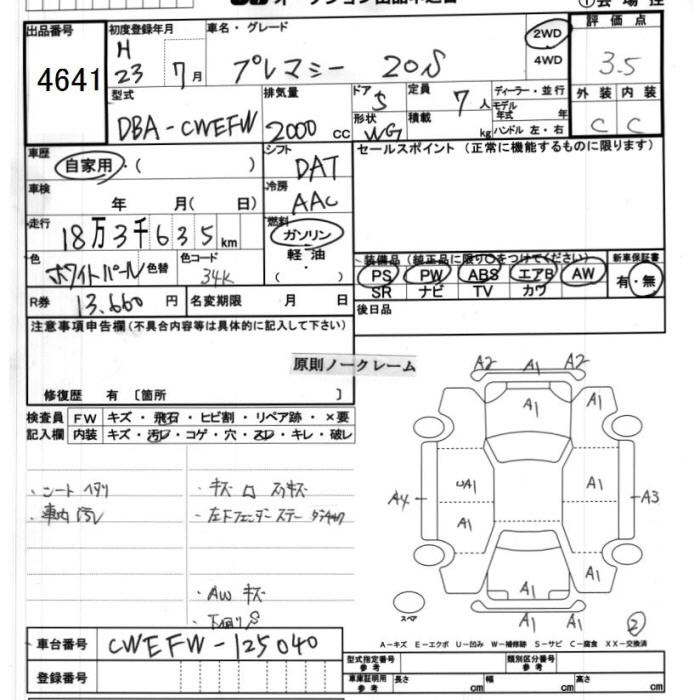 出品番号
4641
初度登録年月
H
23 7月
車名・グレード
プレマシー 20S
2WD
4WD
評価点
3.5
外装 内装
C C
型式
DBA-CWEFW
排気量
2000 cc
ドア
5
形状
WG
定員
7人
積載
kg
ディーラー・並行
モデル
年式 年
ハンドル 左・右
車歴
自家用・( )
シフト
DAT
セールスポイント (正常に機能するものに限ります)
車検
年 月( 日)
冷房
AAC
走行
18万3千635km
燃料
ガソリン
軽油
( ・ )
色
ホワイトパール
色替
色コード
34K
装備品 (純正品に限り○をつけてください)
PS PW ABS エアB AW
SR ナビ TV カワ
新車保証書
有・無
R券
13.660 円
名変期限 月 日
後日品
注意事項申告欄 (不具合内容等は具体的に記入して下さい)
原則ノークレーム
修復歴 有 〔箇所 〕
検査員
記入欄
FW キズ・飛石・ヒビ割・リペア跡・×要
内装 キズ・汚レ・コゲ・穴・スレ・キレ・破レ
・シートヘタリ
・車内汚レ
・AW キズ
A2 A1 A2
A1 A1
A4 UA1 A1 A3
A1
A1 A1
A1 A1
スペア
2
A-キズ E-エクボ U-凹み W-補修跡 S-サビ C-腐食 XX-交換済
車台番号
CWEFW-125040
登録番号
型式指定番号
参考
類別区分番号
参考
車庫証明用
参考
長さ cm
幅 cm
高さ cm